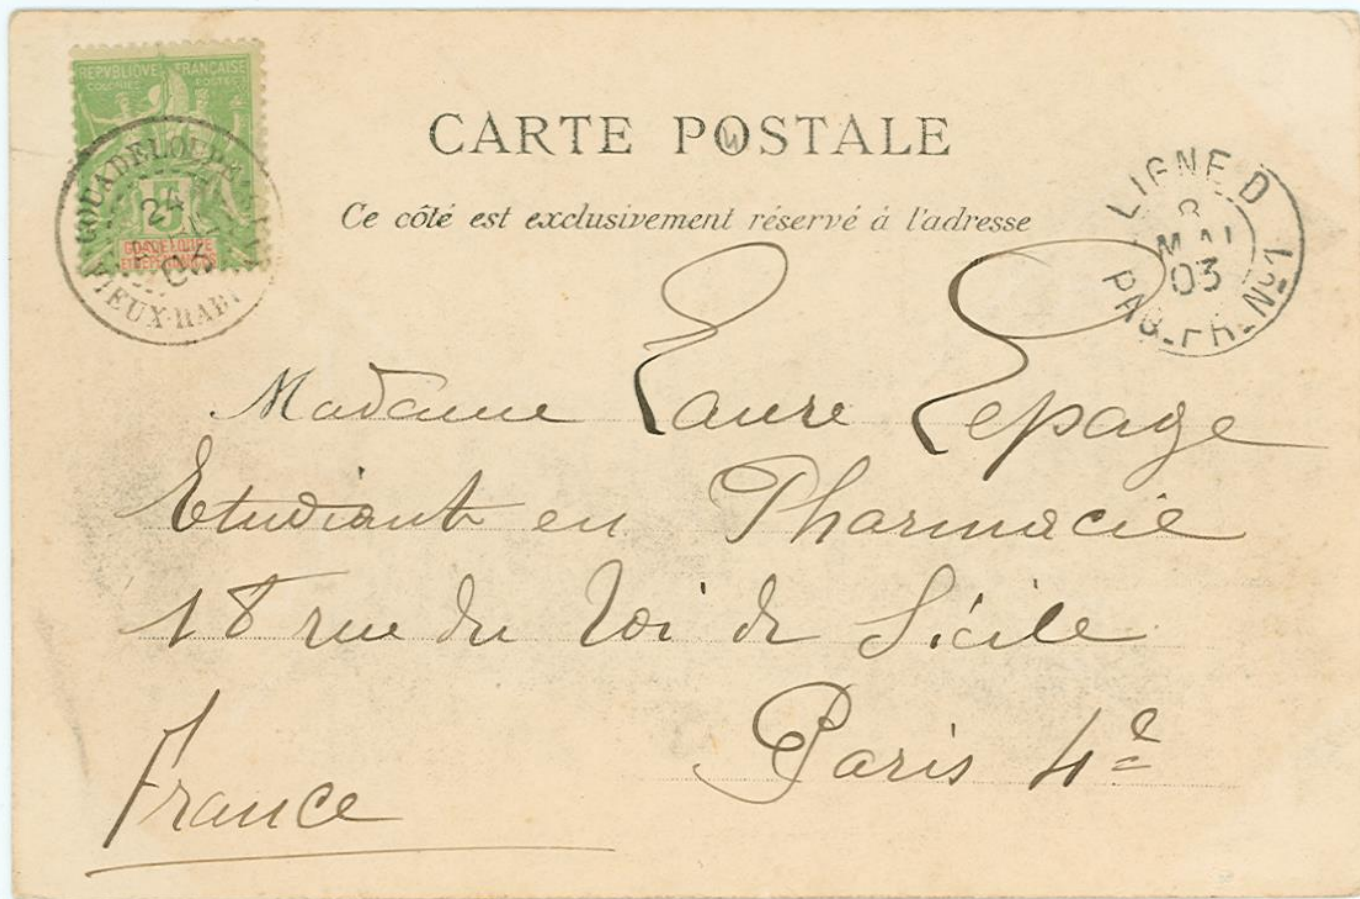 REPVBLIQVE FRANÇAISE
COLONIES POSTES
GUADELOUPE
24
03
GUADELOUPE
ET DEPENDANCES
VIEUX-HABI
CARTE POSTALE
Ce côté est exclusivement réservé à l'adresse
LIGNE D
8
MAI
03
PAQ. FR. Nº1
Madame Laure Lepage
Etudiant en Pharmacie
18 rue du Roi de Sicile
Paris 4e
France